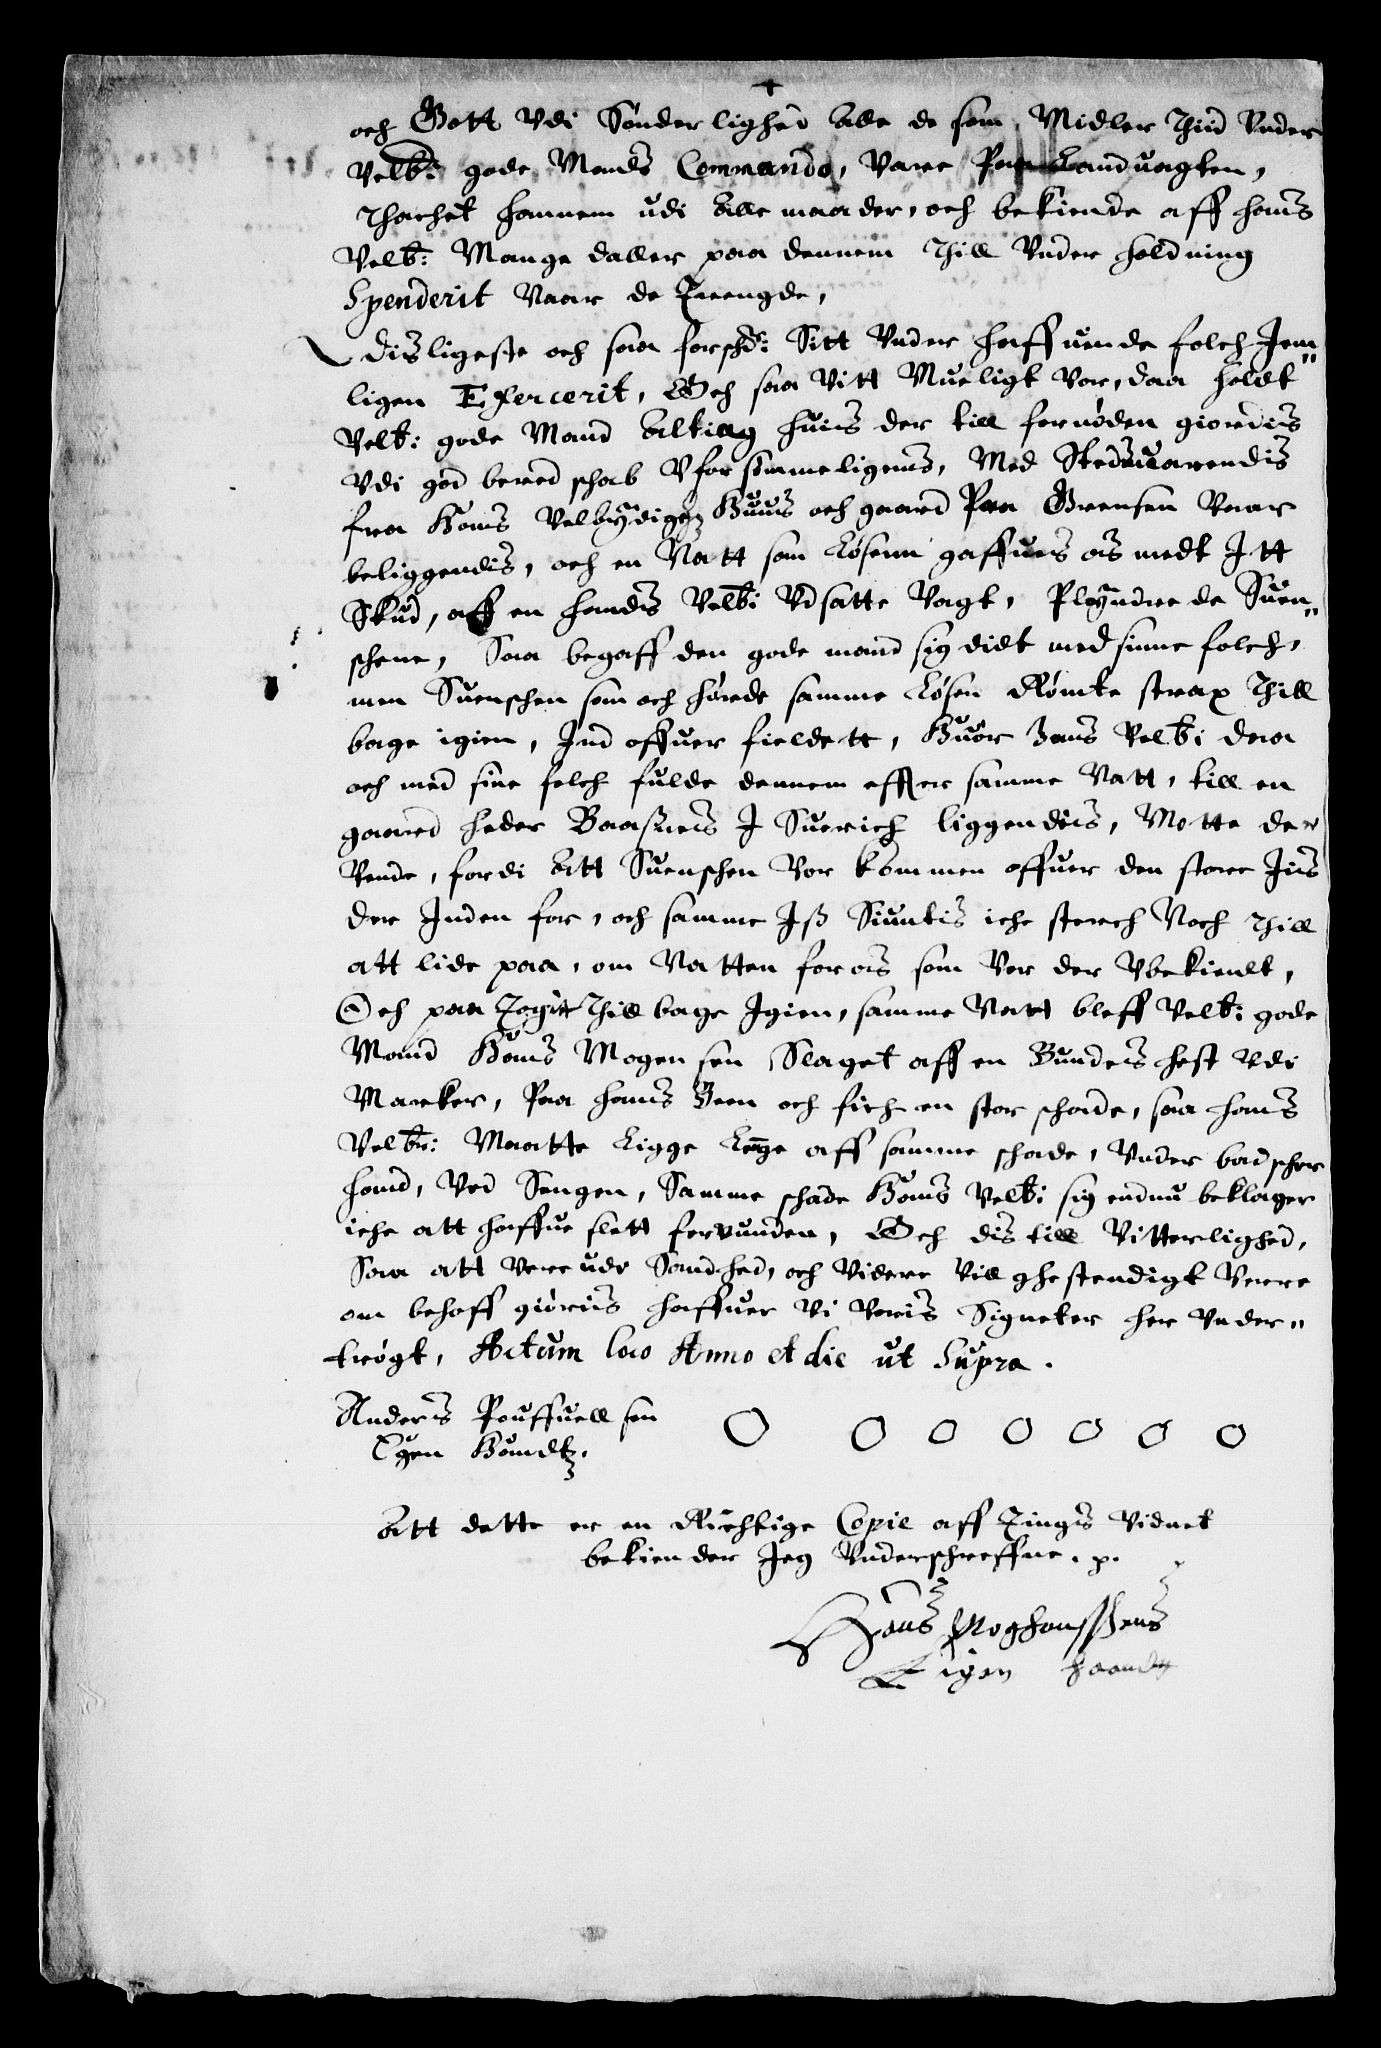 och Gott Vdi Sønderlighed Alle de som Midler Thid Vnder
Velb: gode Mands Commando, Vare Paa Landvagten,
Thachet hannem udi Alle maader, och bekiende aff hans
Velb: Mange daller paa dennem Thill Vnder holdning
Spenderit Naar de Trengde,
disligeste och saa forschd: Sitt Vnder haffuende folch Jem"
ligen Exercerit, Och saa Vitt Mueligt Var, daa holdt
Velb: gode Mand Alting huis der till fornøden giordis
Vdi god beredschab Vforsømmeligens, Med Stedsuarendis
fra Hans Velbyrdiges Huus och gaard Paa Grensen Vaar
beliggendis, och en Natt som Løsenn gaffues os medt Itt
Skud, aff en handis Velb: Vdsatte Vagt, Pløyndrede Suen"
schene, Saa begaff den gode mand sig didt med sinne folch,
men Suenschen som och hørde samme Løsen Rømte strax Thill
bage igien, Ind offuer fieldett, Huor hans Velb: daa
och med sine folch fulde dennem effter samme Natt, till en
gaard heder Baasnes I Suerich liggendis, Motte der
Vende, fordi Att Suenschen Var kommen offuer den store Jis
der Inden for, och samme Iß Siuntis iche sterch Noch Thill
att lide paa, om Natten for os som Var der Vbekiendt,
Och paa Togitt Thillbage Igien, samme Natt bleff Velb: gode
Mand Hans Mogensen Slaget aff en Bundes hest Vdi
Marker, Paa hans Been och fich en stor schade, saa hans
Velb: Maatte Ligge Lenge aff samme schade, Vnder badscher
hand, Ved Sengen, Samme schade Hans Velb: sig endnu beklager
iche att haffue slett foruunden, Och dis till Vitterlighed,
Saa att Vere udi Sandhed, och Videre Vill ghestendigt Verre
om behoff giøris haffuer Vi Voris Signeter her Vnder"
trøgt, Actum loco Anno et die ut Supra.
Anders Pouffuellsen
Egen Haandtz.
Att dette er en Richtige Copie aff Tingis Vidnet
bekiender Jeg Vnderschreffne. p.
Hans Moghanssens
Eigen haandt